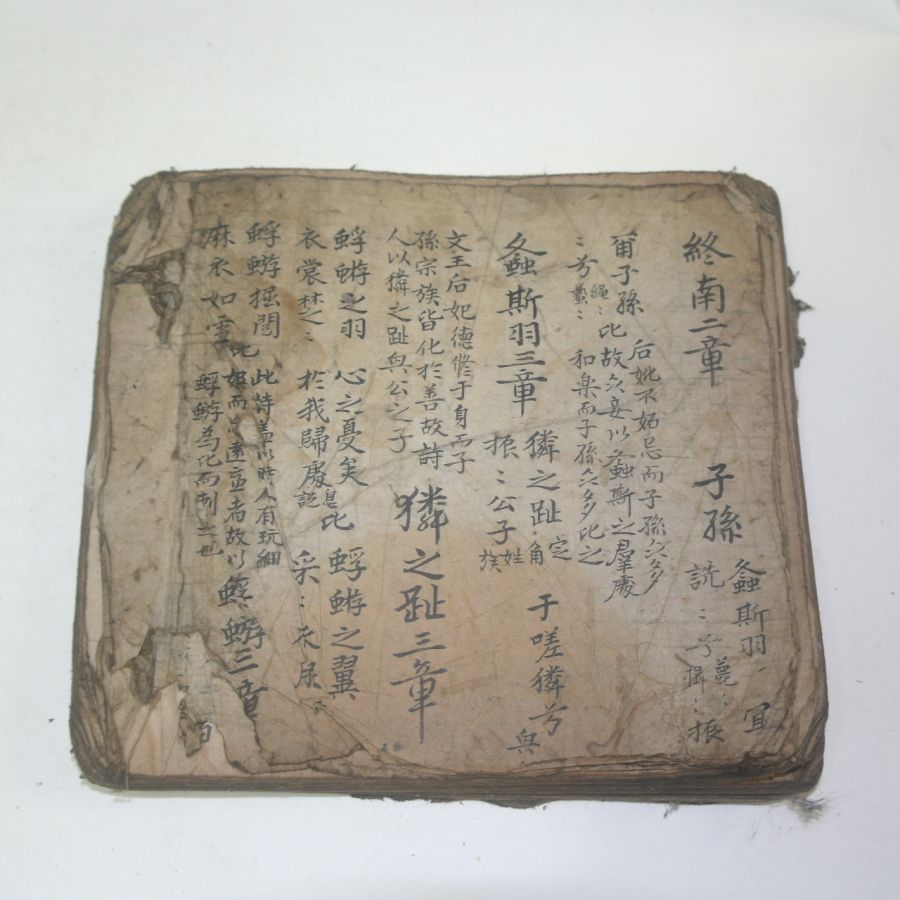 終南二章 子孫
螽斯羽 宜
詵〻兮 薨〻 揖〻 振
爾子孫
〻兮 繩〻 蟄〻 比
后妣不妬忌而子孫众多
故众妾以螽斯之羣處
和楽而子孫众多比之
螽斯羽三章
獜之趾 定 角
振〻公子 姓 族
于嗟獜兮 與
文王后妃德修于身而子
孫宗族皆化於善故詩
人以獜之趾與公之子
獜之趾三章
蜉蝣之羽
衣裳楚〻
心之憂矣
於我歸處 息 説 比
蜉蝣之翼
采〻衣服
蜉蝣掘閱
麻衣如雪 比
此詩盖以時人有玩細
娯而忘遠慮者故以
蜉蝣為比而刺之也
蜉蝣三章